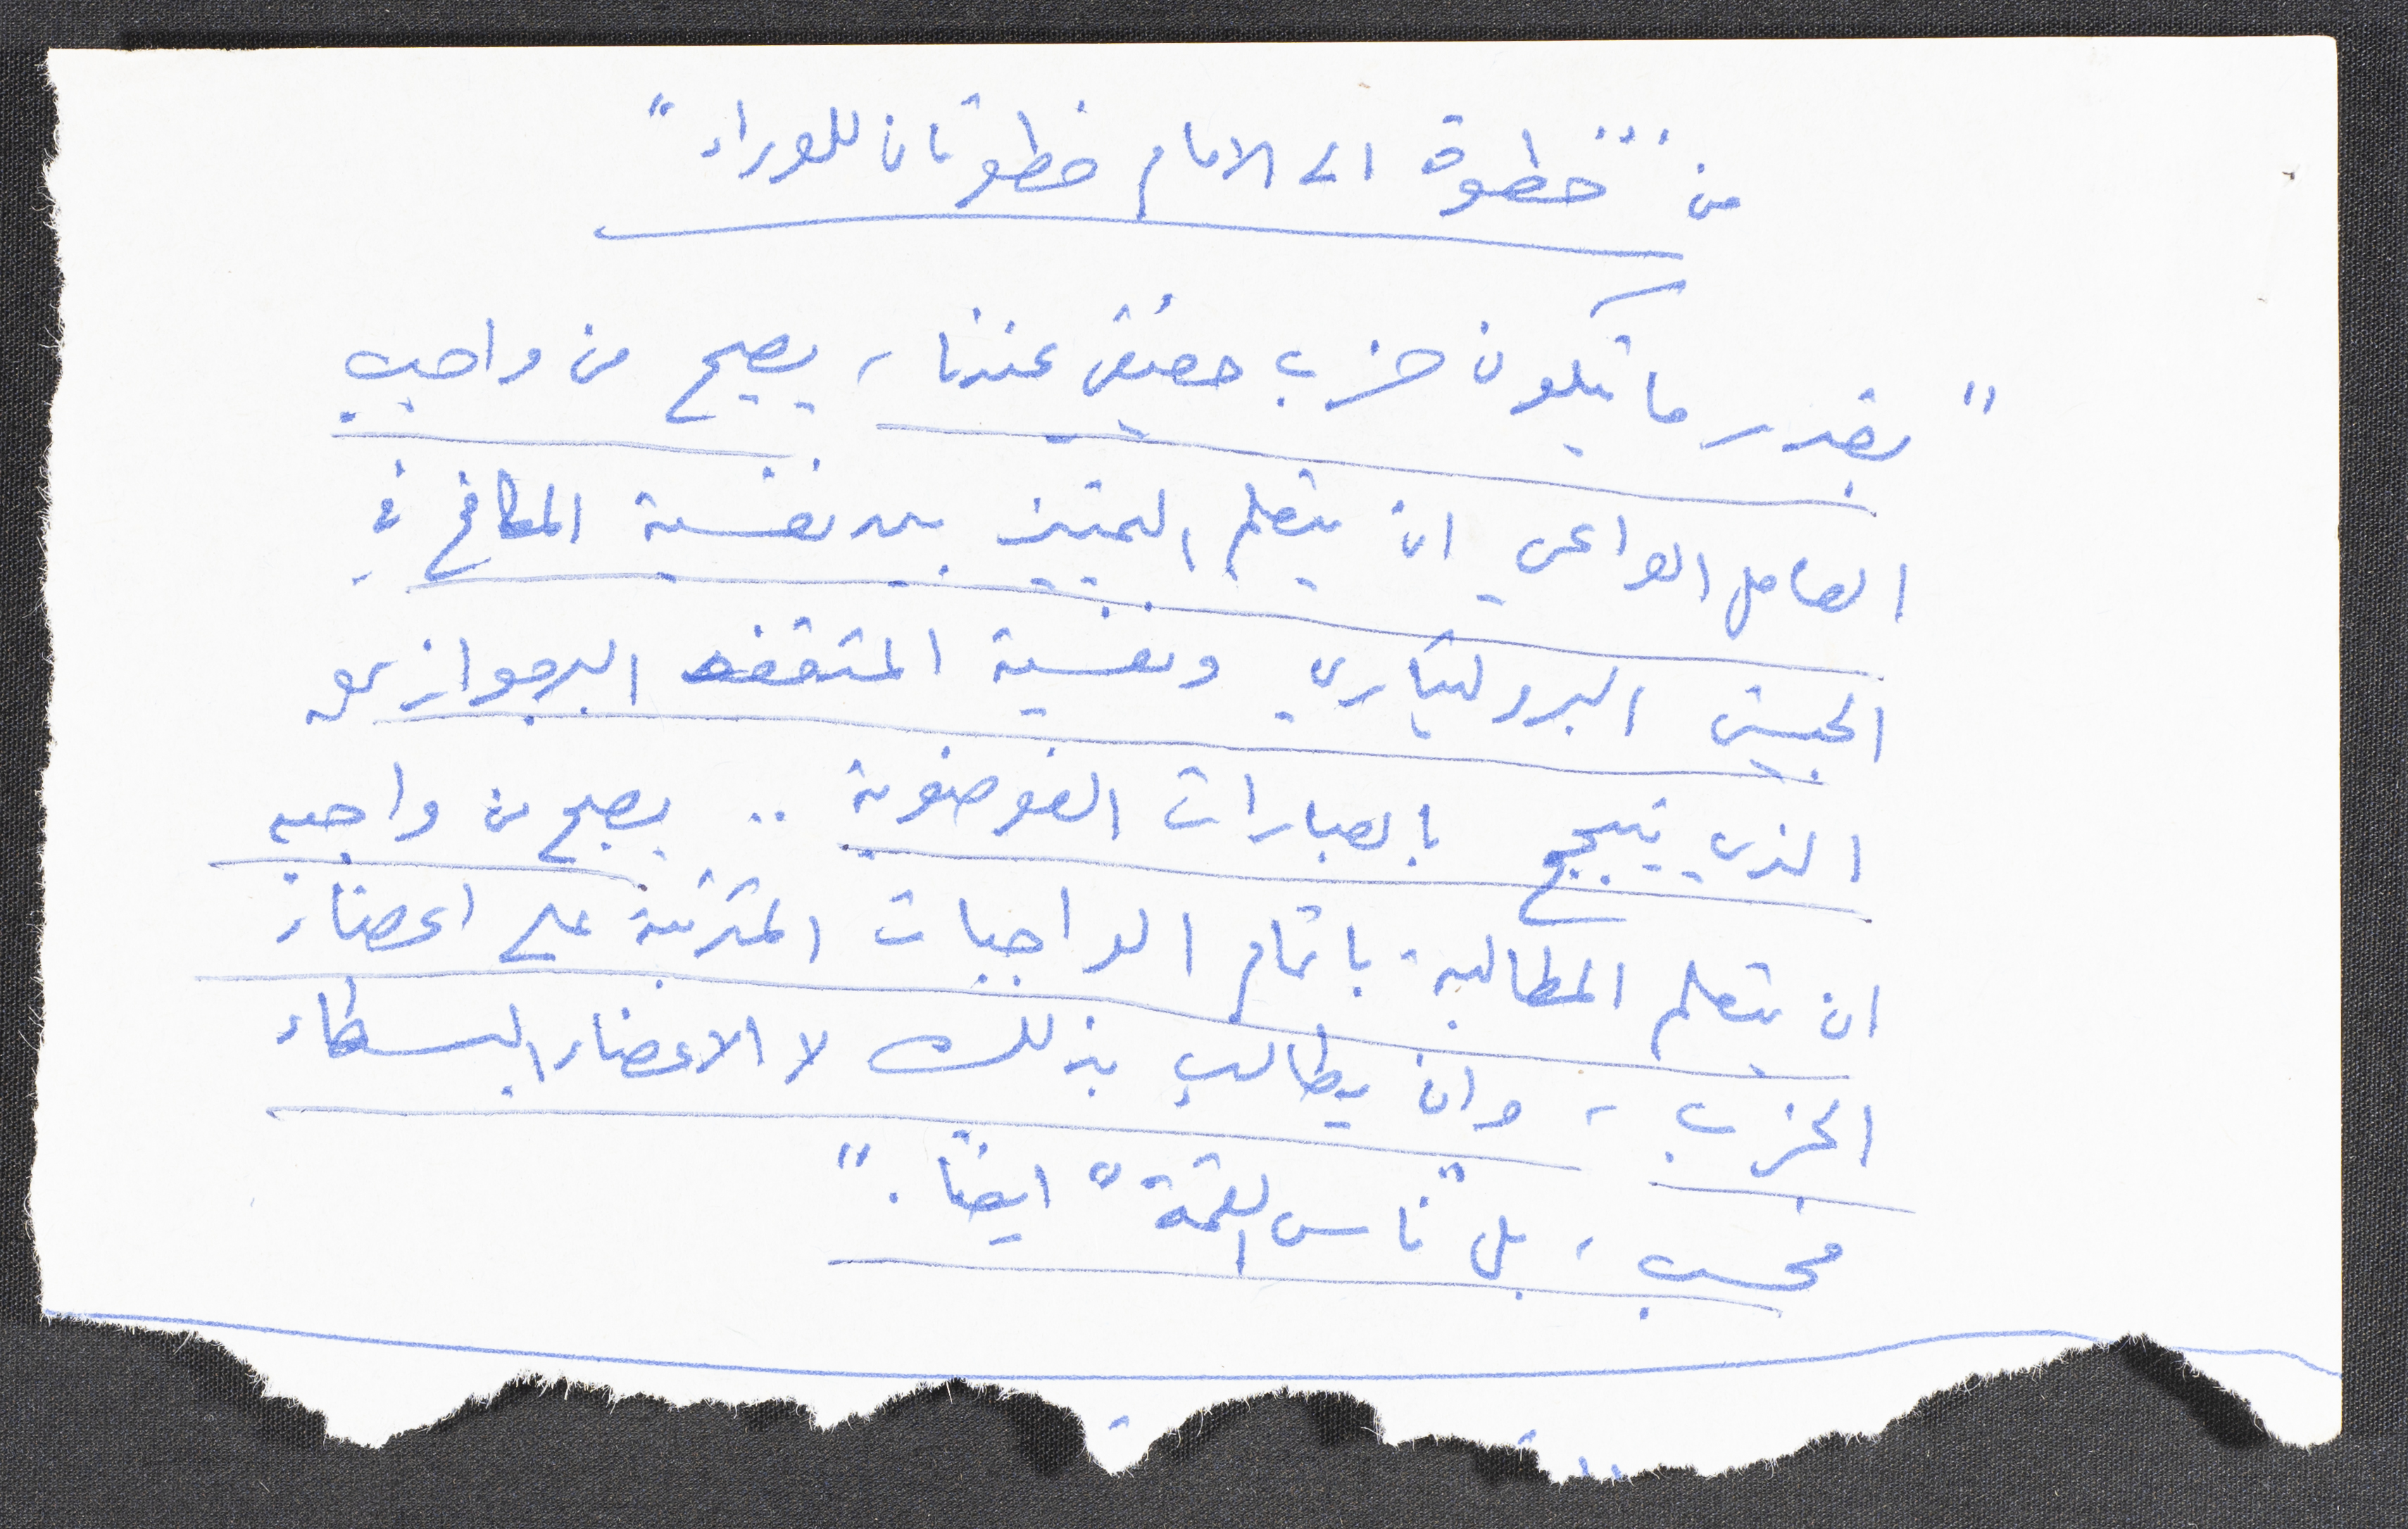 من "خطوة الى الامام خطوتان للوراء"
" بقدر ما يتكون حزب حقيقي عندنا ، يصبح من واجب
العامل الواعي ان يتعلم التمييز بين نفسية المكافح في
الجيش البروليتاري ونفسية المثقف البرجوازي
الذي يتبجح بالعبارات الفوضوية .. يصبح من واجبه
ان يتعلم المطالبة باتمام الواجبات المترتبة على اعضاء
الحزب ، وان يطالب بذلك لا الاعضاء البسطاء
فحسب ، بل "ناس القمة" ايضاً . "